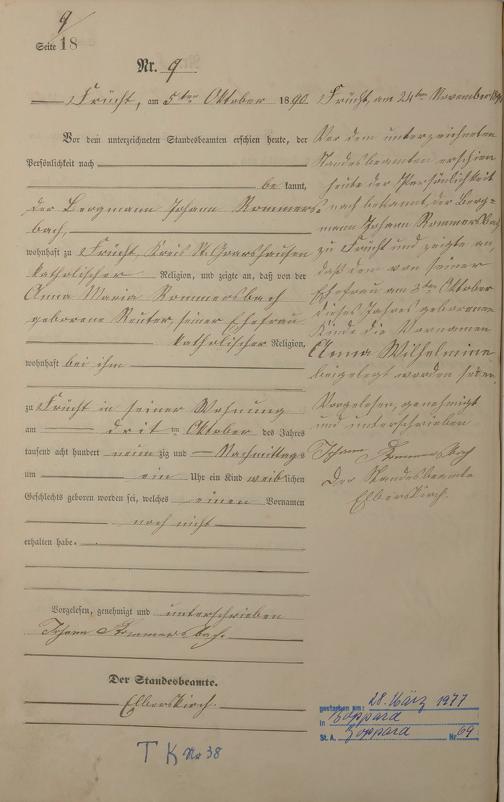 9
Seite 18
Nr. 9
Frücht, am 5ten Oktober 1890.
Vor dem unterzeichneten Standesbeamten erschien heute, der
Persönlichkeit nach
be kannt,
der Bergmann Johann Rommers=
bach,
wohnhaft zu Frücht, Kreis St. Goarshausen
katholischer Religion, und zeigte an, daß von der
Anna Maria Rommersbach
geborene Reuter, seiner Ehefrau
katholischer Religion,
wohnhaft bei ihm
zu Frücht in seiner Wohnung
am drit ten Oktober des Jahres
tausend acht hundert neun zig und Nachmittags
um ein Uhr ein Kind weib lichen
Geschlechts geboren worden sei, welches einen Vornamen
noch nicht
erhalten habe.
Vorgelesen, genehmigt und unterschrieben
Johann Rommersbach.
Der Standesbeamte.
Elberskirch.
TK No 38
Frücht, am 24ten November 1890
Vor dem unterzeichneten
Standesbeamten erschien
heute der Persönlichkeit
nach bekannt, der Berg=
mann Johann Rommersbach
zu Frücht und zeigte an
daß dem von seiner
Ehefrau am 3ten Oktober
dieses Jahres geborenen
Kinde die Vornamen
Anna Wilhelmine
beigelegt worden seien
Vorgelesen, genehmigt
und unterschrieben
Johann Rommersbach
Der Standesbeamte
Elberskirch.
gestorben am: 28. März 1977
in Boppard
St. A. Boppard Nr. 69